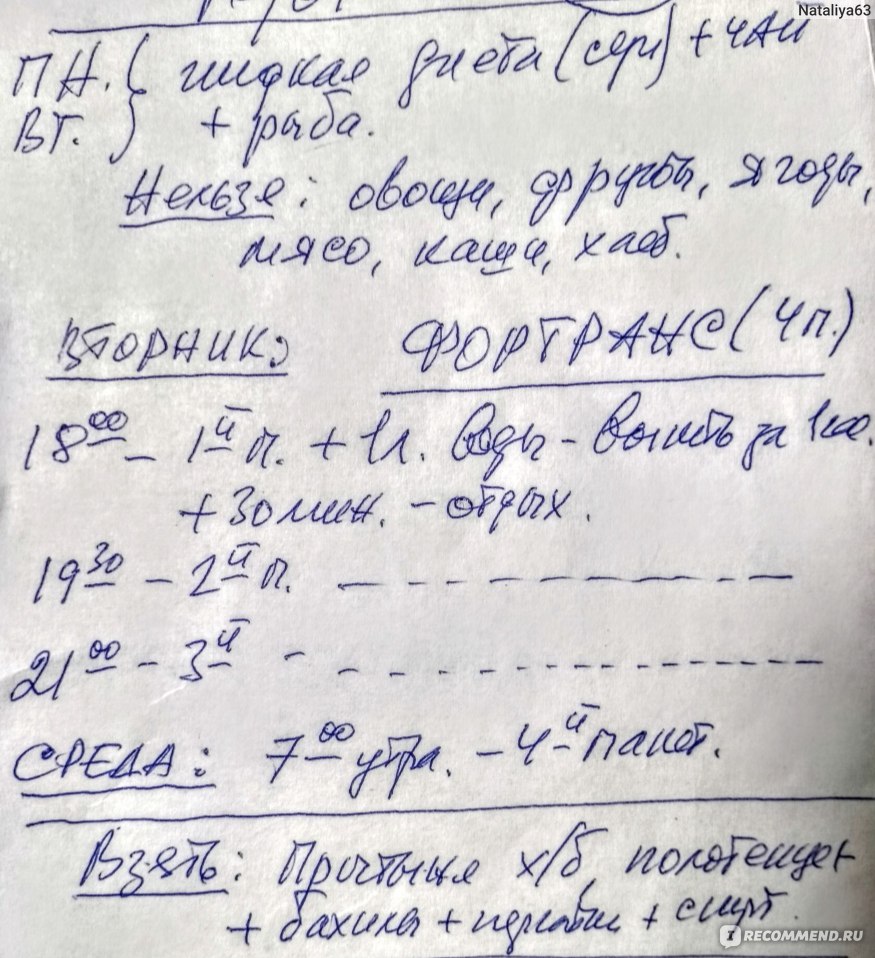 Nataliya63
ПН. { жидкая диета (суп) + чай
ВТ. } + рыба.
Нельзя: овощи, фрукты, ягоды,
мясо, каши, хлеб.
ВТОРНИК: ФОРТРАНС (4 п.)
18 00 – 1й п. + 1л. воды – выпить за 1 час.
+ 30 мин. – отдых.
19 30 – 2й п. – – – – – – – –
21 00 – 3й – – – – – – – – –
СРЕДА: 7 00 утра. – 4й пакет.
Взять: Простыня х/б, полотенце +
+ бахилы + перчатки + спирт.
RECOMMEND.RU